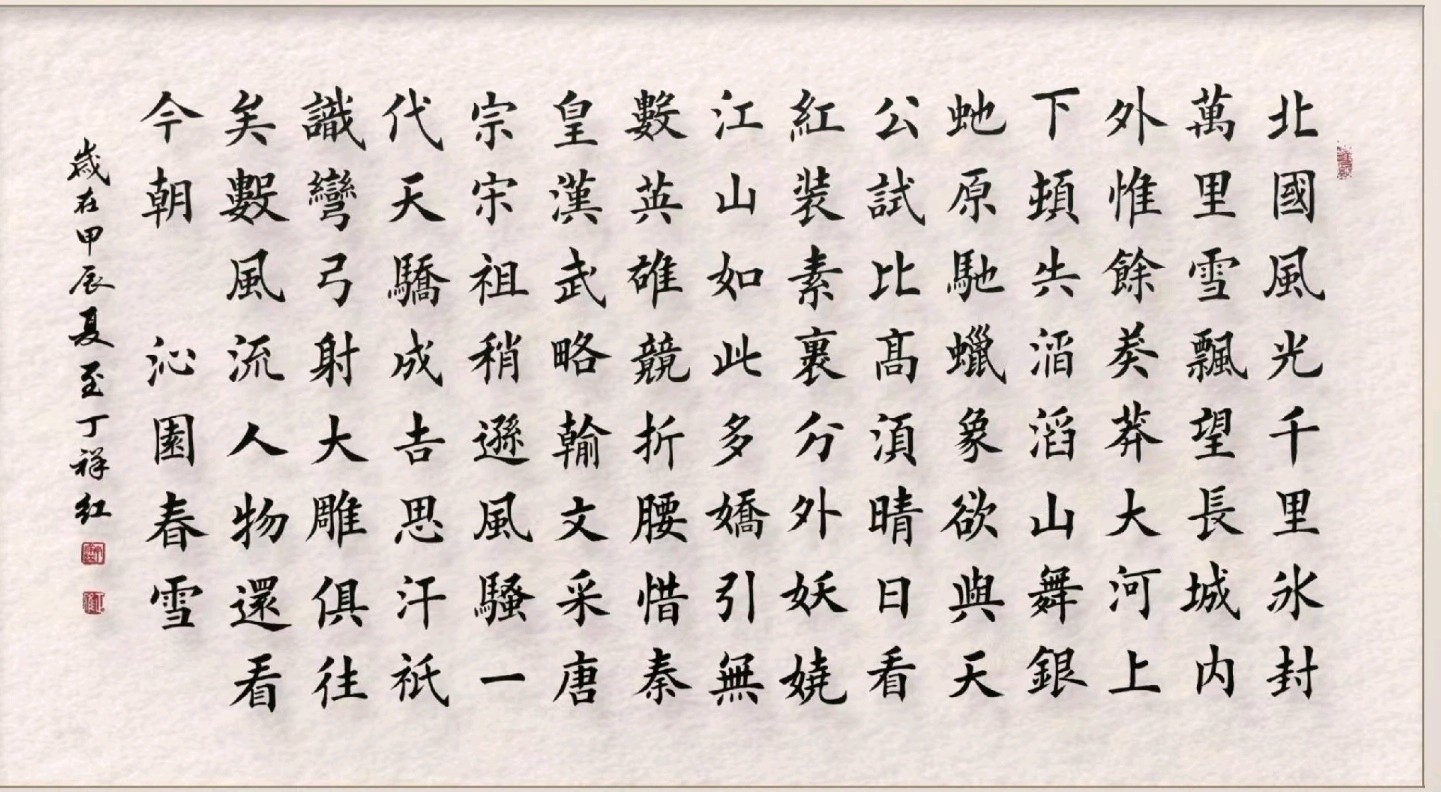 北國風光千里氷封
萬里雪飄望長城内
外惟餘莽莽大河上
下頓失滔滔山舞銀
虵原馳蠟象欲與天
公試比髙湏晴日看
紅装素裹分外妖娆
江山如此多嬌引無
數英雄競折腰惜秦
皇漢武略輸文采唐
宗宋祖稍遜風騷一
代天驕成吉思汗祇
識彎弓射大雕俱往
矣數風流人物還看
今朝 沁園春雪
歲在甲辰夏至丁祥红